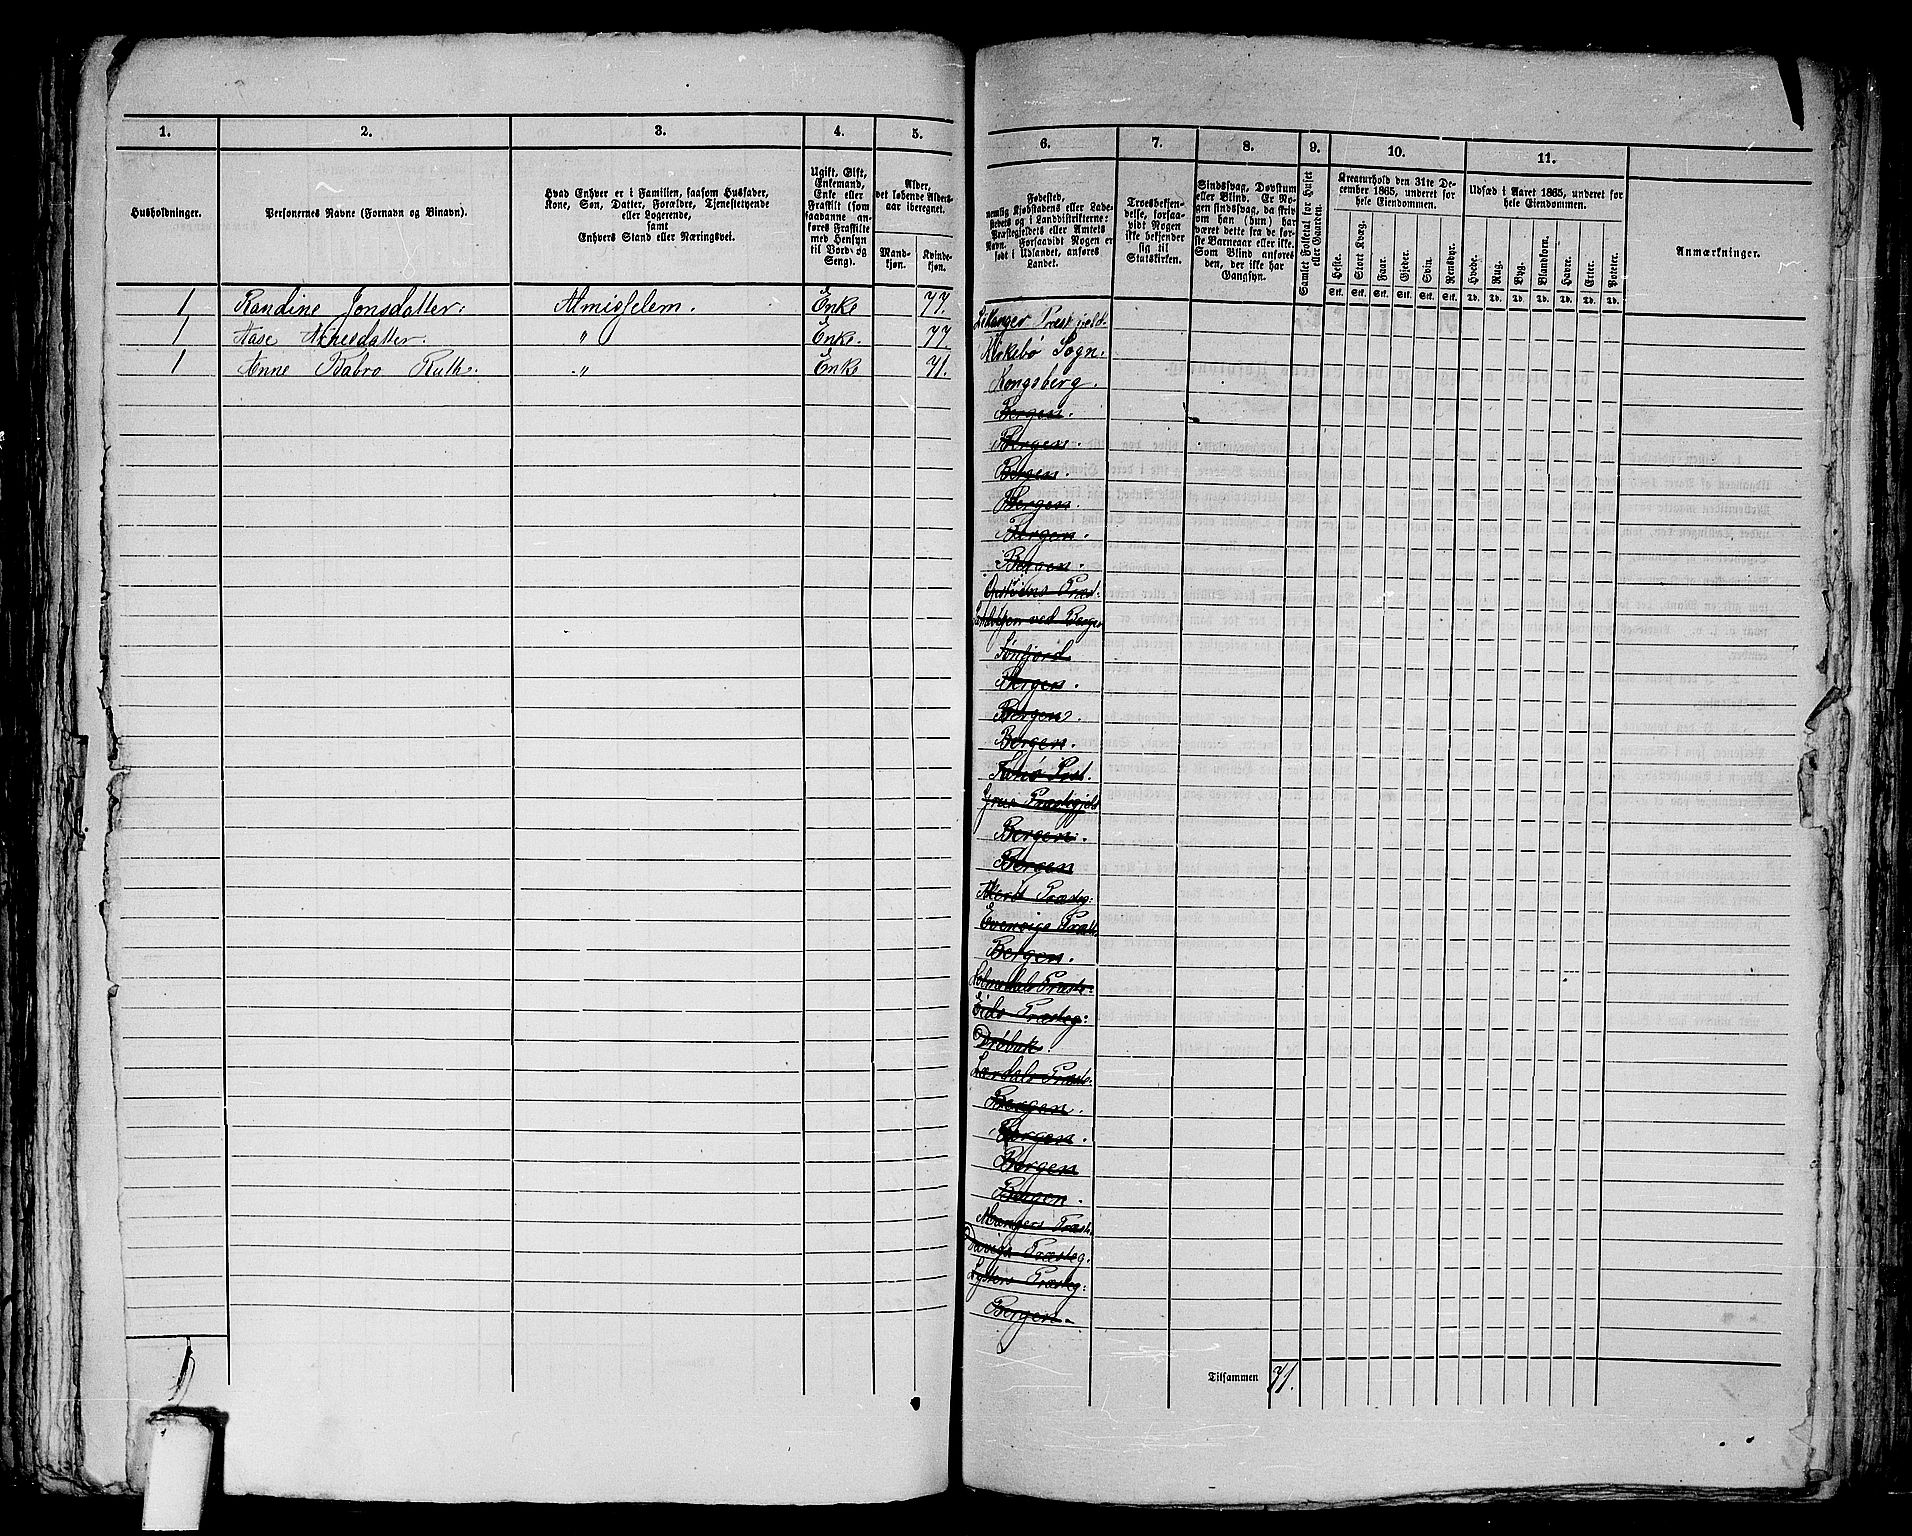 1.
2.
3.
4.
5.
Husholdninger.
Personernes Navne (Fornavn og Binavn).
Hvad Enhver er i Familien, saasom Husfader,
Kone, Søn, Datter, Forældre, Tjenestetyende
eller Logerende,
samt
Enhvers Stand eller Næringsvei.
Ugift, Gift,
Enkemand,
Enke eller
Fraskilt (som
saadanne an-
føres Fraskilte
med Hensyn
til Bord og
Seng).
Alder,
det løbende Alders-
aar iberegnet.
Mand-
kjøn.
Kvinde-
kjøn.
1 Randine Jonsdatter. Almisselem. Enke 77.
1 Aase Arnesdatter. " Enke. 77
1 Anne Babro Ruth. " Enke 71.
6.
7.
8.
9.
10.
11.
Fødested,
nemlig Kjøbstadens eller Lade-
stedets og i Landdistrikterne:
Præstegjeldets eller Amtets
Navn. Forsaavidt Nogen er
født i Udlandet, anføres
Landet.
Troesbekjen-
delse, forsaa-
vidt Nogen
ikke bekjender
sig til
Statskirken.
Sindssvag, Døvstum
eller Blind. Er No-
gen sindssvag, da skriv
om han (hun) har
været dette fra de før-
ste Barneaar eller ikke.
Som Blind anføres
den, der ikke har
Gangsyn.
Samlet Folketal for Huset
eller Gaarden.
Kreaturhold den 31te De-
cember 1865, underet for
hele Eiendommen.
Heste. Stort Kvæg. Faar. Gjeder. Svin. Rensdyr.
Stk. Stk. Stk. Stk. Stk. Stk.
Udsæd i Aaret 1865, underet for
hele Eiendommen.
Hvede. Rug. Byg. Blankorn. Havre. Erter. Poteter.
Td. Td. Td. Td. Td. Td. Td.
Anmærkninger.
Lekanger Præstgjeld.
Sogn.
Kongsberg.
Bergen.
Bergen.
Bergen.
Bergen.
Bergen.
Bergen.
Præst:
ved Bergen
Sønfjord
Bergen.
Bergen.
Bergen.
Præst.
Præstegjeld
Bergen.
Bergen
Præsteg:
Evenvigs Præst.
Bergen.
Præste:
Eids Præsteg:
Drøbak.
Lærdals Præste.
Bergen.
Bergen.
Bergen
Bergen.
Mangers Præst.
Davigs Præsteg.
Lysters Præsteg:
Bergen.
Tilsammen 71.